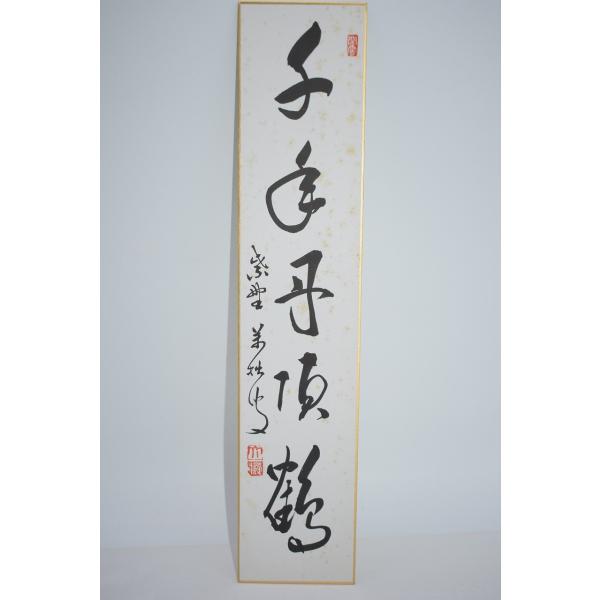 千年丹頂鶴
紫野